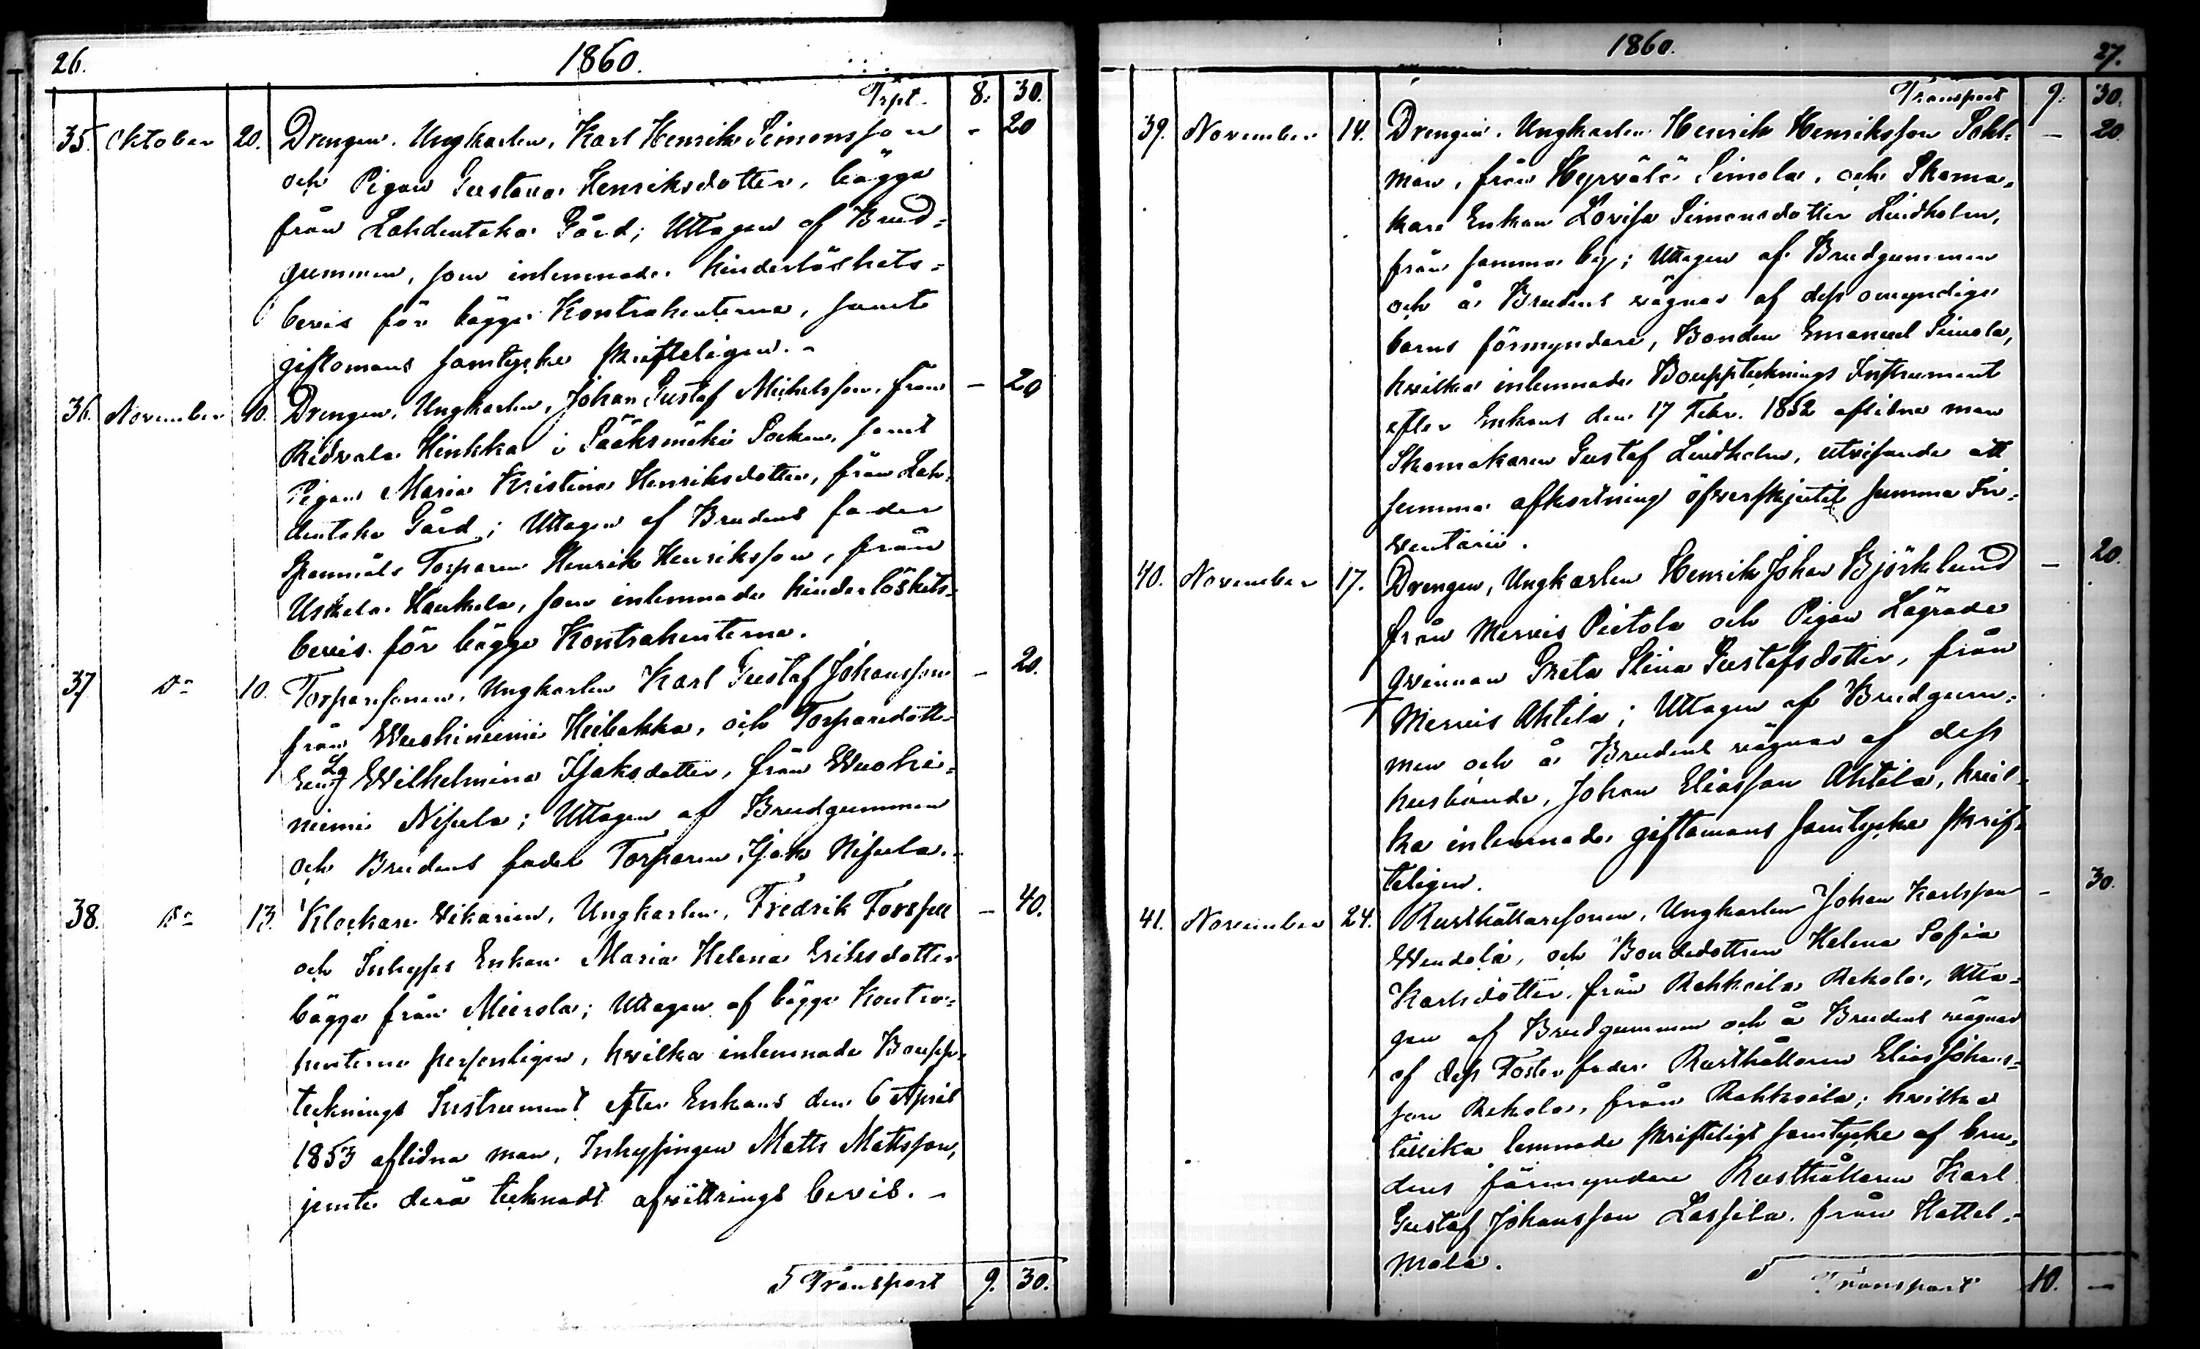 26. 1860.
Trpt. 8: 30.
35. Oktober 20. Drengen, Ungkarlen, Karl Henrik Simonsson - 20
och Pigan Gustava Henriksdotter, bägge
från Lahdentaka Gård; Uttagen af Brud=
gummen, som inlemnade hinderlöshets=
bevis för bägge Kontrahenterna, samt
giftomans samtycke skrifteligen. -
36. November 10. Drengen, Ungkarlen, Johan Gustaf Michelsson, från - 20
Ridvala Hinkka i Sääksmäki Socken, samt
Pigan Maria Kristina Henriksdotter, från Lah=
dentaka Gård; Uttagen af Brudens fader
Spannmåls Torparen Henrik Henriksson, från
Uskela Haukela, som inlemnade hinderlöshets=
bevis för bägge Kontrahenterna.
37. Do 10. Torparesonen, Ungkarlen Karl Gustaf Johansson - 20.
från Wuohiniemi Heikakka, och Torparedott=
Wilhelmina Isaksdotter, från Wuohi=
niemi Nisula; Uttagen af Brudgummen
och Brudens fader Torparen Isak Nisula. -
38. Do 13. Klockare Vikarien, Ungkarlen, Fredrik Forssell - 40.
och Inhyses Enkan Maria Helena Eriksdotter
bägge från Mierola; Uttagen af bägge Kontra=
henterna personligen, hvilka inlemnade Boupp=
tecknings Instrument efter Enkans den 6 April
1853 aflidna man, Inhysingen Matts Mattsson,
jemte derå tecknadt afvittrings bevis. -
Transport 9. 30.
1860. 27.
Transport 9: 30.
39. November 14. Drengen, Ungkarlen Henrik Henriksson Sohl= - 20
man, från Hyrvälä Simola, och Skoma=
kare Enkan Lovisa Simonsdotter Lindholm,
från samma by; Uttagen af Brudgummen
och å Brudens vägnar af dess omyndiga
barns förmyndare, Bonden Emanuel Simola,
hvilka inlemnade Bouppteknings Instrument
efter Enkans den 17 Febr. 1852 aflidna man
Skomakaren Gustaf Lindholm, utvisande att
summa afkortning öfverskjutit summa In=
ventarii.
40. November 17. Drengen, Ungkarlen Henrik Johan Björklund - 20.
från Merveis Pietola och Pigan Lägrade
qvinnan Greta Stina Gustafsdotter, från
Merveis Ahtila; Uttagen af Brudgum=
men och å Brudens vägnar af dess
husbonde, Johan Eliasson Ahtila, hvil=
ka inlemnade giftomans samtycke skrif=
teligen.
41. November 24. Rusthållaresonen, Ungkarlen Johan Karlsson - 30.
Wendelä, och Bondedottren Helena Sofia
Karlsdotter, från Rahkoila Rekola, Utta=
gen af Brudgummen och å Brudens vägnar
af dess Fosterfader Rusthållaren Elias Johans=
son Rekola, från Rahkoila; hvilka
tillika lemnade skriftligt samtycke af bru=
dens förmyndare Rusthållaren Karl
Gustaf Johansson Lassila, från Hattel=
mala.
Transport 10. -